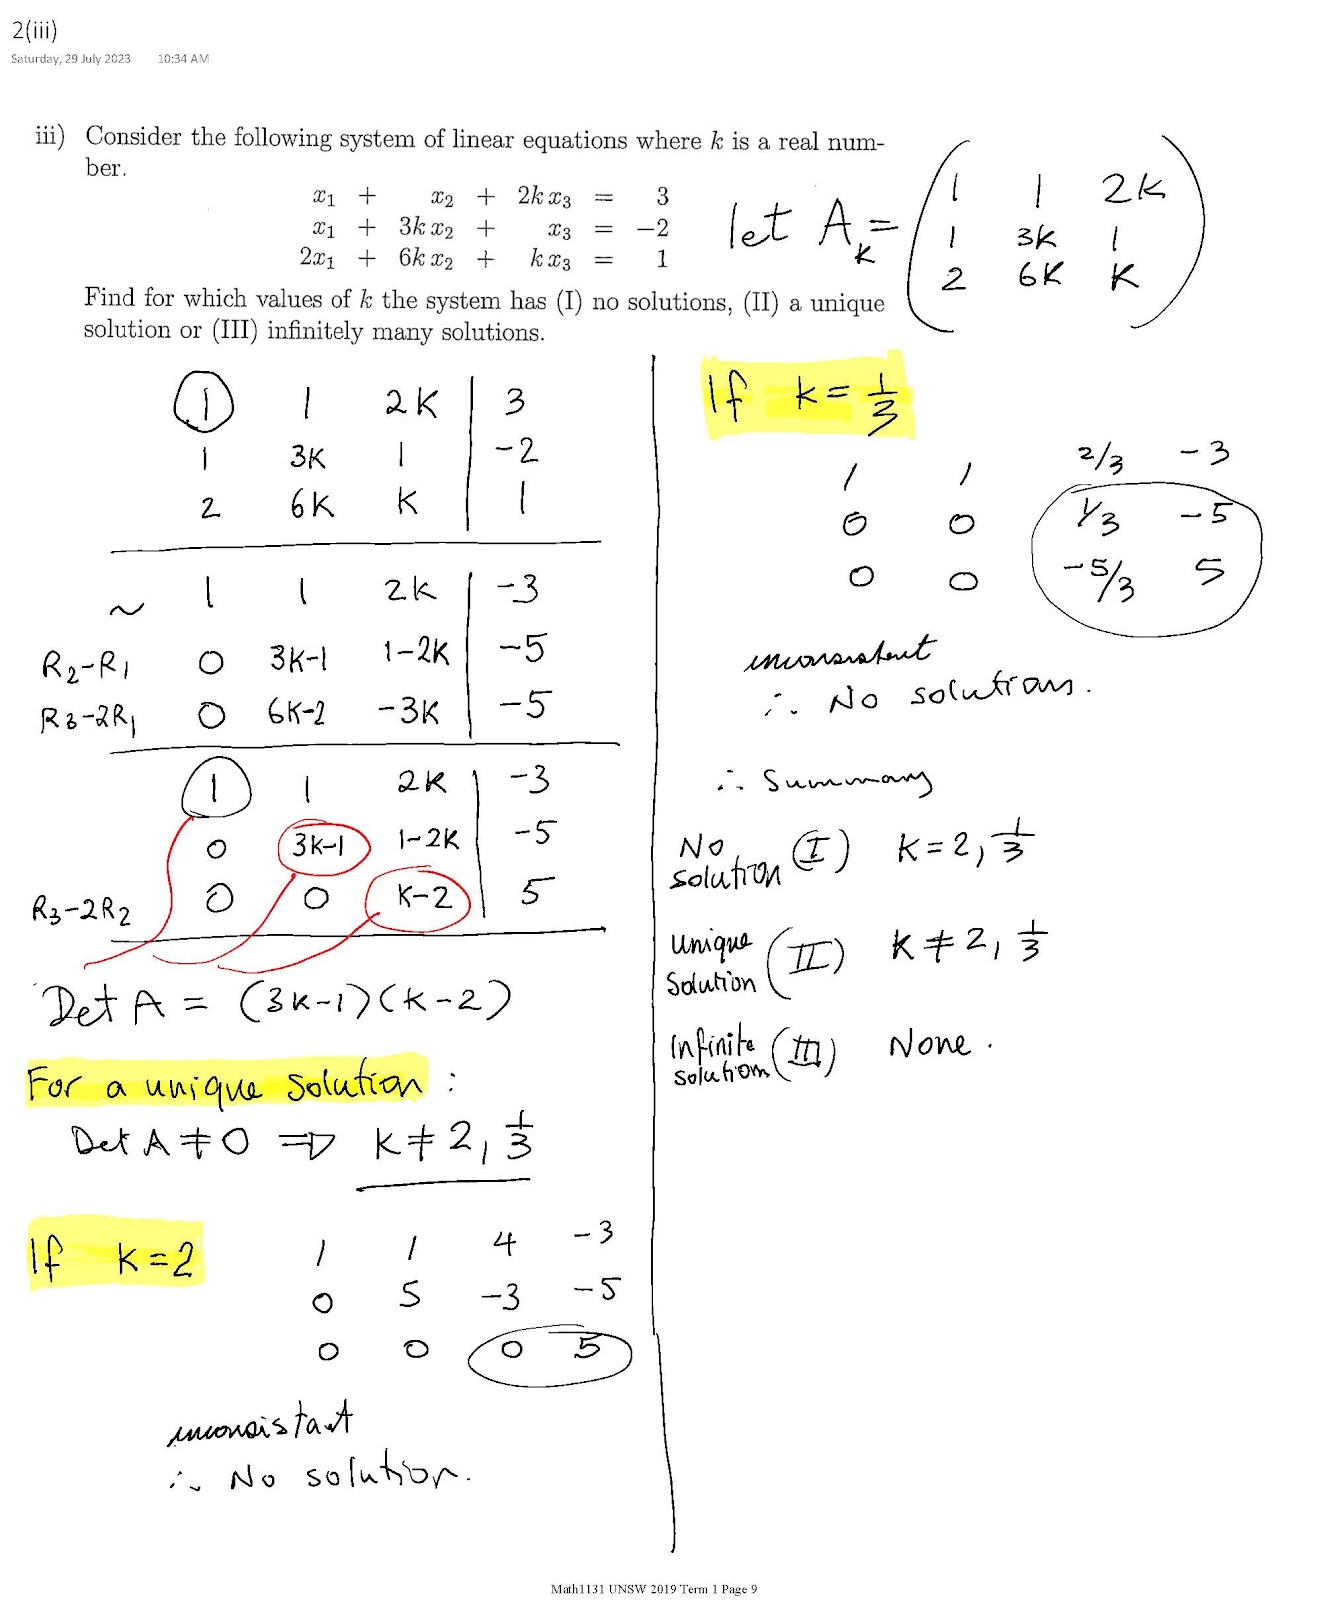 2(iii)
Saturday, 29 July 2023 10:34 AM
iii) Consider the following system of linear equations where k is a real num-
ber.
x₁ + x₂ + 2k x₃ = 3
x₁ + 3k x₂ + x₃ = −2
2x₁ + 6k x₂ + k x₃ = 1
Find for which values of k the system has (I) no solutions, (II) a unique
solution or (III) infinitely many solutions.
let A_K =
1 1 2K
1 3K 1
2 6K K
1 1 2K | 3
1 3K 1 | -2
2 6K K | 1
~ 1 1 2K | -3
R₂-R₁ 0 3K-1 1-2K | -5
R₃-2R₁ 0 6K-2 -3K | -5
1 1 2K | -3
0 3K-1 1-2K | -5
R₃-2R₂ 0 0 K-2 | 5
Det A = (3K-1)(K-2)
For a unique solution :
Det A ≠ 0 ⇒ K ≠ 2, 1/3
If K=2
1 1 4 -3
0 5 -3 -5
0 0 0 5
inconsistant
∴ No solution.
If K = 1/3
1 1 2/3 -3
0 0 1/3 -5
0 0 -5/3 5
inconsistent
∴ No solutions.
∴ Summary
No solution (I) K = 2, 1/3
Unique Solution (II) K ≠ 2, 1/3
Infinite solutions (III) None.
Math1131 UNSW 2019 Term 1 Page 9